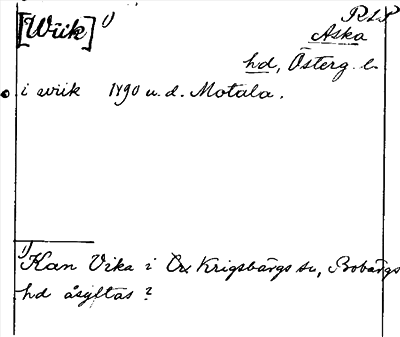 [Wiik] 1)
RLS
Aska
hd, Österg. l.
i wiik 1490 u. d. Motala.
1) Kan Vika i Krigsbärgs sn, Bobärgs
hd åsyftas?